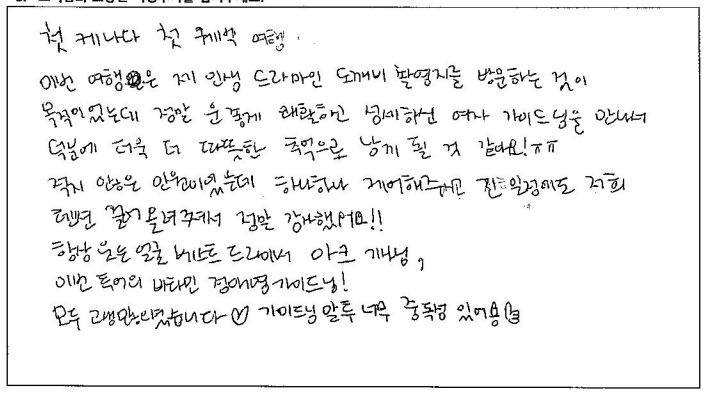 첫 캐나다 첫 퀘벡 여행.
이번 여행은 제 인생 드라마인 도깨비 촬영지를 방문하는 것이
목적이었는데 정말 운좋게 쾌활하고 섬세하신 여자 가이드님을 만나서
덕분에 더욱 더 따뜻한 추억으로 남게 될 것 같아요!ㅠㅠ
적지 않은 인원이었는데 하나하나 케어해주시고 일정에도 저희
텐션 끌어올려주셔서 정말 감사했어요!!
항상 웃는 얼굴 베스트 드라이버 마크 기사님,
이번 투어의 비타민 가이드님!
모두 고생많으셨습니다♡ 가이드님 말투 너무 중독성 있어용